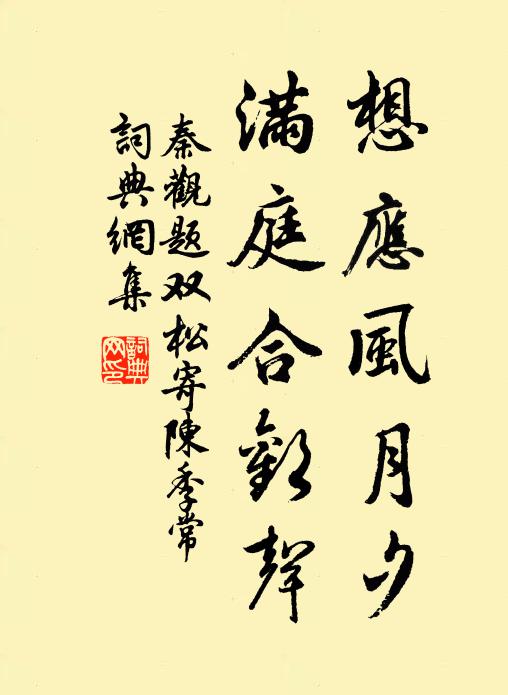 想應風月夕
滿庭合歡聲
秦觀題双松寄陳季常
詞典網集
詞典網印